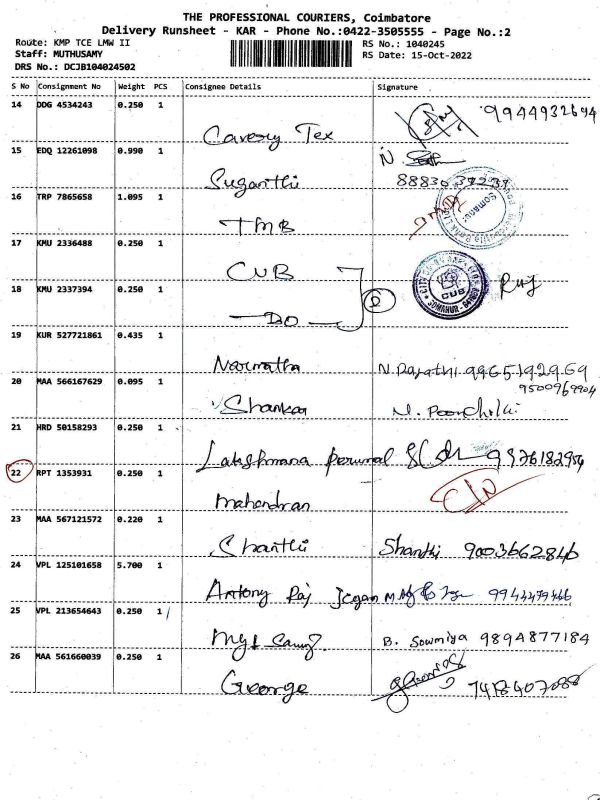 THE PROFESSIONAL COURIERS, Coimbatore
Delivery Runsheet - KAR - Phone No.:0422-3505555 - Page No.:2
Route: KMP TCE LMW II
RS No.: 1040245
Staff: MUTHUSAMY
RS Date: 15-Oct-2022
DRS No.: DCJB104024502
S No Consignment No Weight PCS Consignee Details Signature
14 DDG 4534243 0.250 1
9944932694
Cavery Tex
15 EDQ 12261098 0.990 1
N
Suganthi
16 TRP 7865658 1.095 1
TMB
17 KMU 2336488 0.250 1
CUB
18 KMU 2337394 0.250 1
CUB
Do
19 KUR 527721861 0.435 1
Narmatha N 9965192969
20 MAA 566167629 0.095 1 9500969904
Shankar
21 HRD 50158293 0.250 1
Lakshmana perumal 9376182954
22 RPT 1353931 0.250 1
Mahendran
23 MAA 567121572 0.220 1
Shanthi Shanthi 9003662846
24 VPL 125101658 5.700 1
Antony Raj Jegan M
25 VPL 213654643 0.250 1
B. Sowmiya 9894877184
26 MAA 561660039 0.250 1
George 7418407088